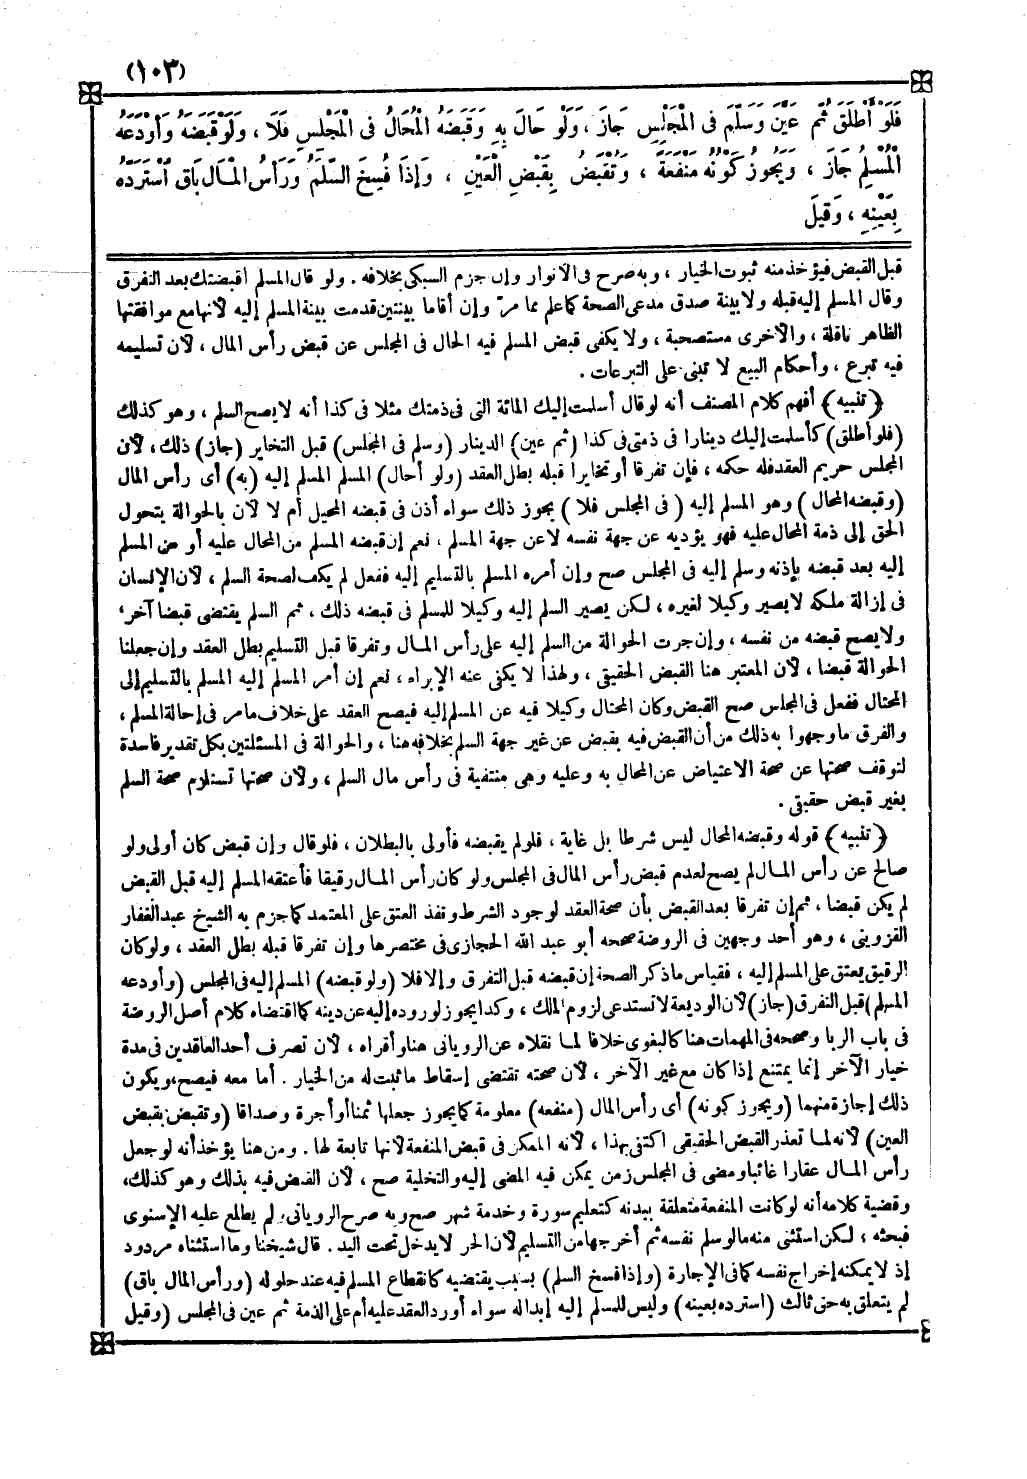 (١٠٣)
فَلَوْ أَطْلَقَ ثُمَّ عَيَّنَ وَسَلَّمَ فِى الْمَجْلِسِ جَازَ ، وَلَوْ حَالَ بِهِ وَقَبَضَهُ الْمُحَالُ فِى الْمَجْلِسِ فَلَا ، وَلَوْ قَبَضَهُ وَأَوْدَعَهُ
الْمُسْلِمُ جَازَ ، وَيَجُوزُ كَوْنُهُ مَنْفَعَةً ، وَتُقْبَضُ بِقَبْضِ الْعَيْنِ ، وَإِذَا فُسِخَ السَّلَمُ وَرَأْسُ الْمَالِ بَاقٍ اسْتَرَدَّهُ
بِعَيْنِهِ ، وَقِيلَ
قبل القبض فيؤخذ منه ثبوت الخيار ، وبه صرح فى الأنوار وإن جزم السبكى بخلافه . ولو قال المسلم أقبضتك بعد التفرق
وقال المسلم إليه قبله ولا بينة صدق مدعى الصحة كما علم مما مرّ وإن أقاما بينتين قدمت بينة المسلم إليه لأنها مع موافقتها
الظاهر ناقلة ، والأخرى مستصحبة ، ولا يكفى قبض المسلم فيه الحال فى المجلس عن قبض رأس المال ، لأن تسليمه
فيه تبرع ، وأحكام البيع لا تبنى على التبرعات .
﴿ تنبيه ﴾ أفهم كلام المصنف أنه لو قال أسلمت إليك المائة التى فى ذمتك مثلا فى كذا أنه لا يصح السلم ، وهو كذلك
(فلو أطلق) كأسلمت إليك دينارا فى ذمتى فى كذا (ثم عين) الدينار (وسلم فى المجلس) قبل التخاير (جاز) ذلك ، لأن
المجلس حريم العقد فله حكمه ، فإن تفرقا أو تخايرا قبله بطل العقد (ولو أحال) المسلم المسلم إليه (به) أى رأس المال
(وقبضه المحال ) وهو المسلم إليه ( فى المجلس فلا ) يجوز ذلك سواء أذن فى قبضه المحيل أم لا لأن بالحوالة يتحول
الحق إلى ذمة المحال عليه فهو يؤديه عن جهة نفسه لا عن جهة المسلم ، نعم إن قبضه المسلم من المحال عليه أو من المسلم
إليه بعد قبضه بإذنه وسلم إليه فى المجلس صح وإن أمره المسلم بالتسليم إليه ففعل لم يكف لصحة السلم ، لأن الإنسان
فى إزالة ملكه لا يصير وكيلا لغيره ، لكن يصير السلم إليه وكيلا للمسلم فى قبضه ذلك ، ثم السلم يقتضى قبضا آخر ،
ولا يصح قبضه من نفسه ، وإن جرت الحوالة من السلم إليه على رأس المال وتفرقا قبل التسليم بطل العقد وإن جعلنا
الحوالة قبضا ، لأن المعتبر هنا القبض الحقيقى ، ولهذا لا يكفى عنه الإبراء ، نعم إن أمر المسلم إليه المسلم بالتسليم إلى
المحتال ففعل فى المجلس صح القبض وكان المحتال وكيلا فيه عن المسلم إليه فيصح العقد على خلاف ما مر فى إحالة المسلم ،
والفرق ما وجهوا به ذلك من أن القبض فيه يقبض عن غير جهة السلم بخلافه هنا ، والحوالة فى المسئلتين بكل تقدير فاسدة
لتوقف صحتها عن صحة الاعتياض عن المحال به وعليه وهى منتفية فى رأس مال السلم ، ولأن صحتها تستلزم صحة السلم
بغير قبض حقيقى .
﴿ تنبيه ﴾ قوله وقبضه المحال ليس شرطا بل غاية ، فلو لم يقبضه فأولى بالبطلان ، فلو قال وإن قبض كان أولى ولو
صالح عن رأس المال لم يصح لعدم قبض رأس المال فى المجلس ولو كان رأس المال رقيقا فأعتقه المسلم إليه قبل القبض
لم يكن قبضا ، ثم إن تفرقا بعد القبض بأن صحة العقد لوجود الشرط ونفذ العتق على المعتمد كما جزم به الشيخ عبد الغفار
القزوينى ، وهو أحد وجهين فى الروضة صححه أبو عبد الله الحجازى فى مختصرها وإن تفرقا قبله بطل العقد ، ولو كان
الرقيق يعتق على المسلم إليه ، فقياس ما ذكر الصحة إن قبضه قبل التفرق وإلا فلا (ولو قبضه) المسلم إليه فى المجلس (وأودعه
المسلم) قبل التفرق (جاز) لأن الوديعة لا تستدعى لزوم الملك ، وكذا يجوز لو رده إليه عن دينه كما اقتضاه كلام أصل الروضة
فى باب الربا وصححه فى المهمات هنا كالبغوى خلافا لما نقلاه عن الرويانى هنا وأقراه ، لأن تصرف أحد العاقدين فى مدة
خيار الآخر إنما يمتنع إذا كان مع غير الآخر ، لأن صحته تقتضى إسقاط ما ثبت له من الخيار . أما معه فيصح ، ويكون
ذلك إجازة منهما (ويجوز كونه) أى رأس المال (منفعه) معلومة كما يجوز جعلها ثمنا أو أجرة وصداقا (وتقبض بقبض
العين) لأنه لما تعذر القبض الحقيقى اكتفى بهذا ، لأنه الممكن فى قبض المنفعة لأنها تابعة لها . ومن هنا يؤخذ أنه لو جعل
رأس المال عقارا غائبا ومضى فى المجلس زمن يمكن فيه المضى إليه والتخلية صح ، لأن القبض فيه بذلك وهو كذلك ،
وقضية كلامه أنه لو كانت المنفعة متعلقة ببدنه كتعليم سورة وخدمة شهر صح وبه صرح الرويانى ولم يطلع عليه الإسنوى
فبحثه ، لكن استثنى منه ما لو سلم نفسه ثم أخرجها من التسليم لأن الحر لا يدخل تحت اليد . قال شيخنا وما استثناه مردود
إذ لا يمكنه إخراج نفسه كما فى الإجارة (وإذا فسخ السلم) بسبب يقتضيه كانقطاع المسلم فيه عند حلوله (ورأس المال باق)
لم يتعلق به حق ثالث (استرده بعينه) وليس للمسلم إليه إبداله سواء أورد العقد عليه أم على الذمة ثم عين فى المجلس (وقيل